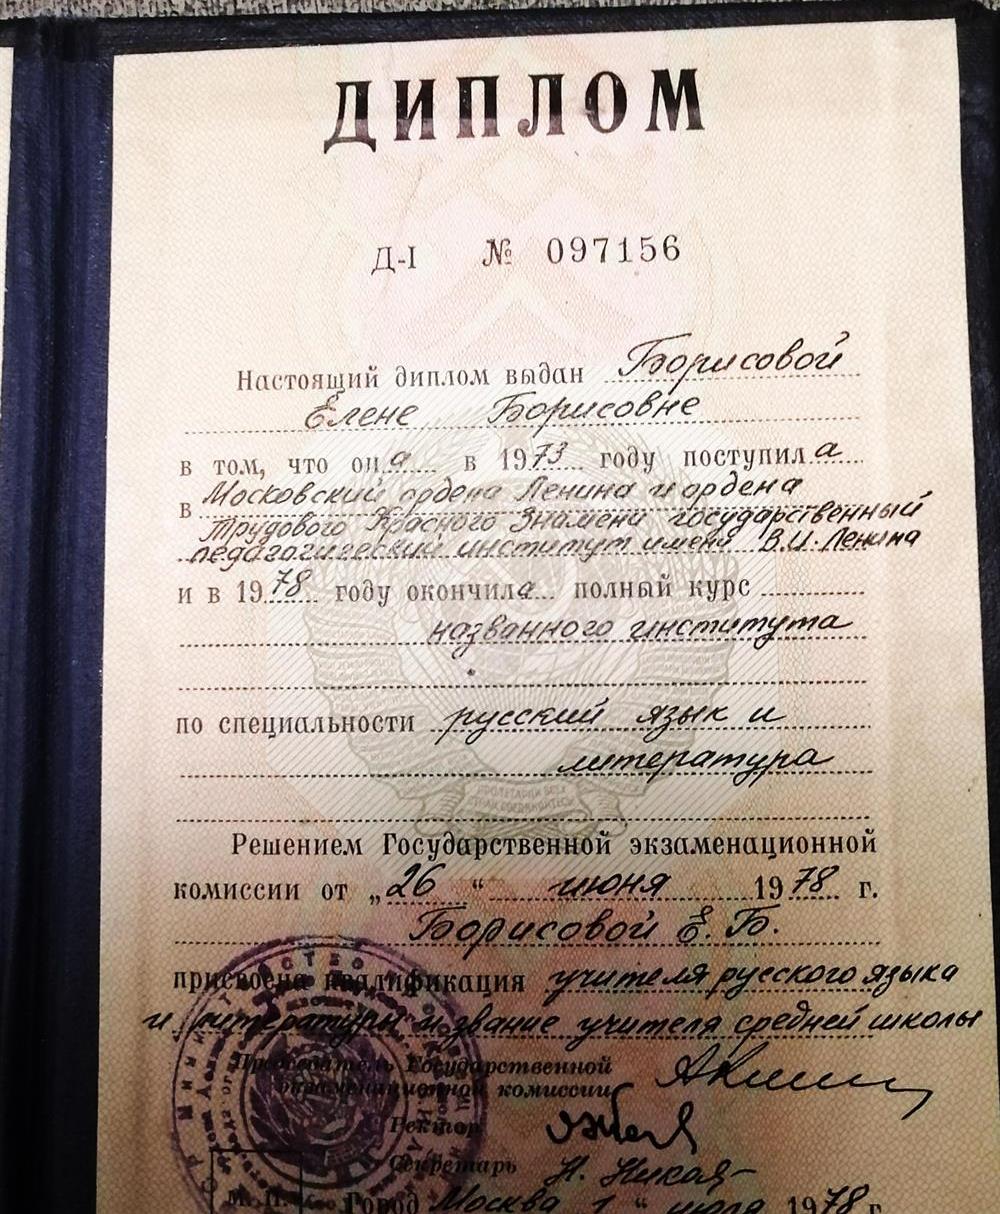 ДИПЛОМ
Д-I № 097156
Настоящий диплом выдан Борисовой
Елене Борисовне
в том, что она в 1973 году поступила
в Московский ордена Ленина и ордена
Трудового Красного Знамени государственный
педагогический институт имени В.И. Ленина
и в 1978 году окончила полный курс
названного института
по специальности русский язык и
литература
ПРОЛЕТАРИИ ВСЕХ
СТРАН СОЕДИНЯЙТЕСЬ
Решением Государственной экзаменационной
комиссии от „26“ июня 1978 г.
Борисовой Е. Б.
присвоена квалификация учителя русского языка
и литературы и звание учителя средней школы
Председатель Государственной
экзаменационной комиссии
Ректор
Секретарь
М. П. Город Москва 1 “ июля 1978 г.